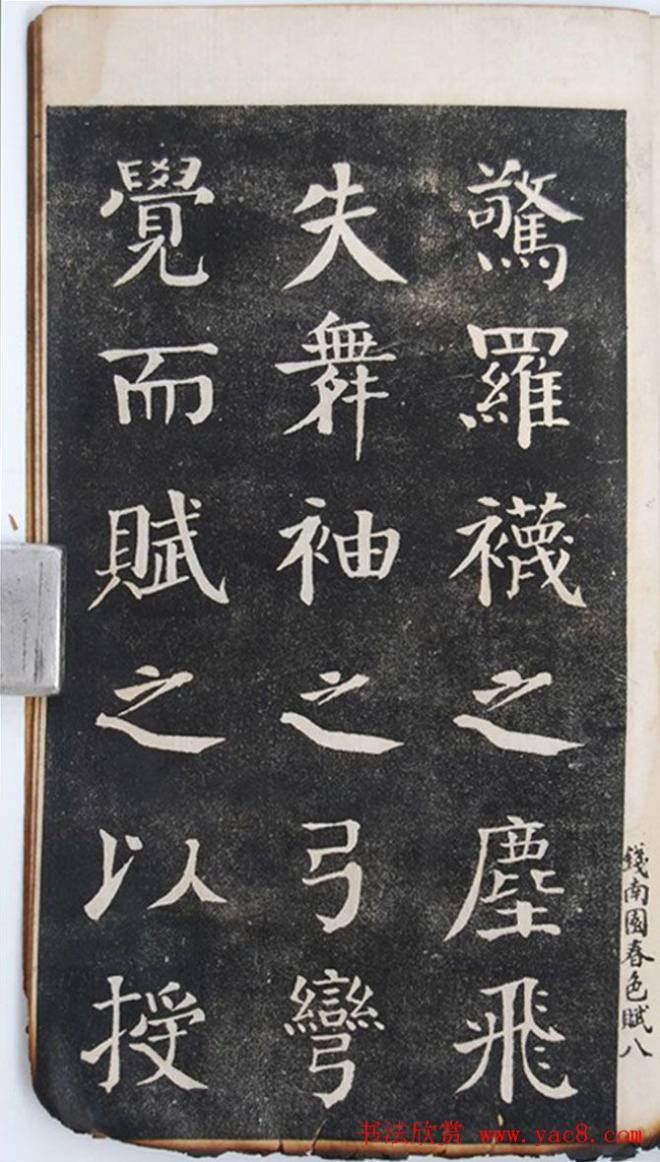 驚羅襪之塵飛
失舞袖之弓彎
覺而賦之以授
錢南園春色賦八
书法欣赏 www.yac8.com